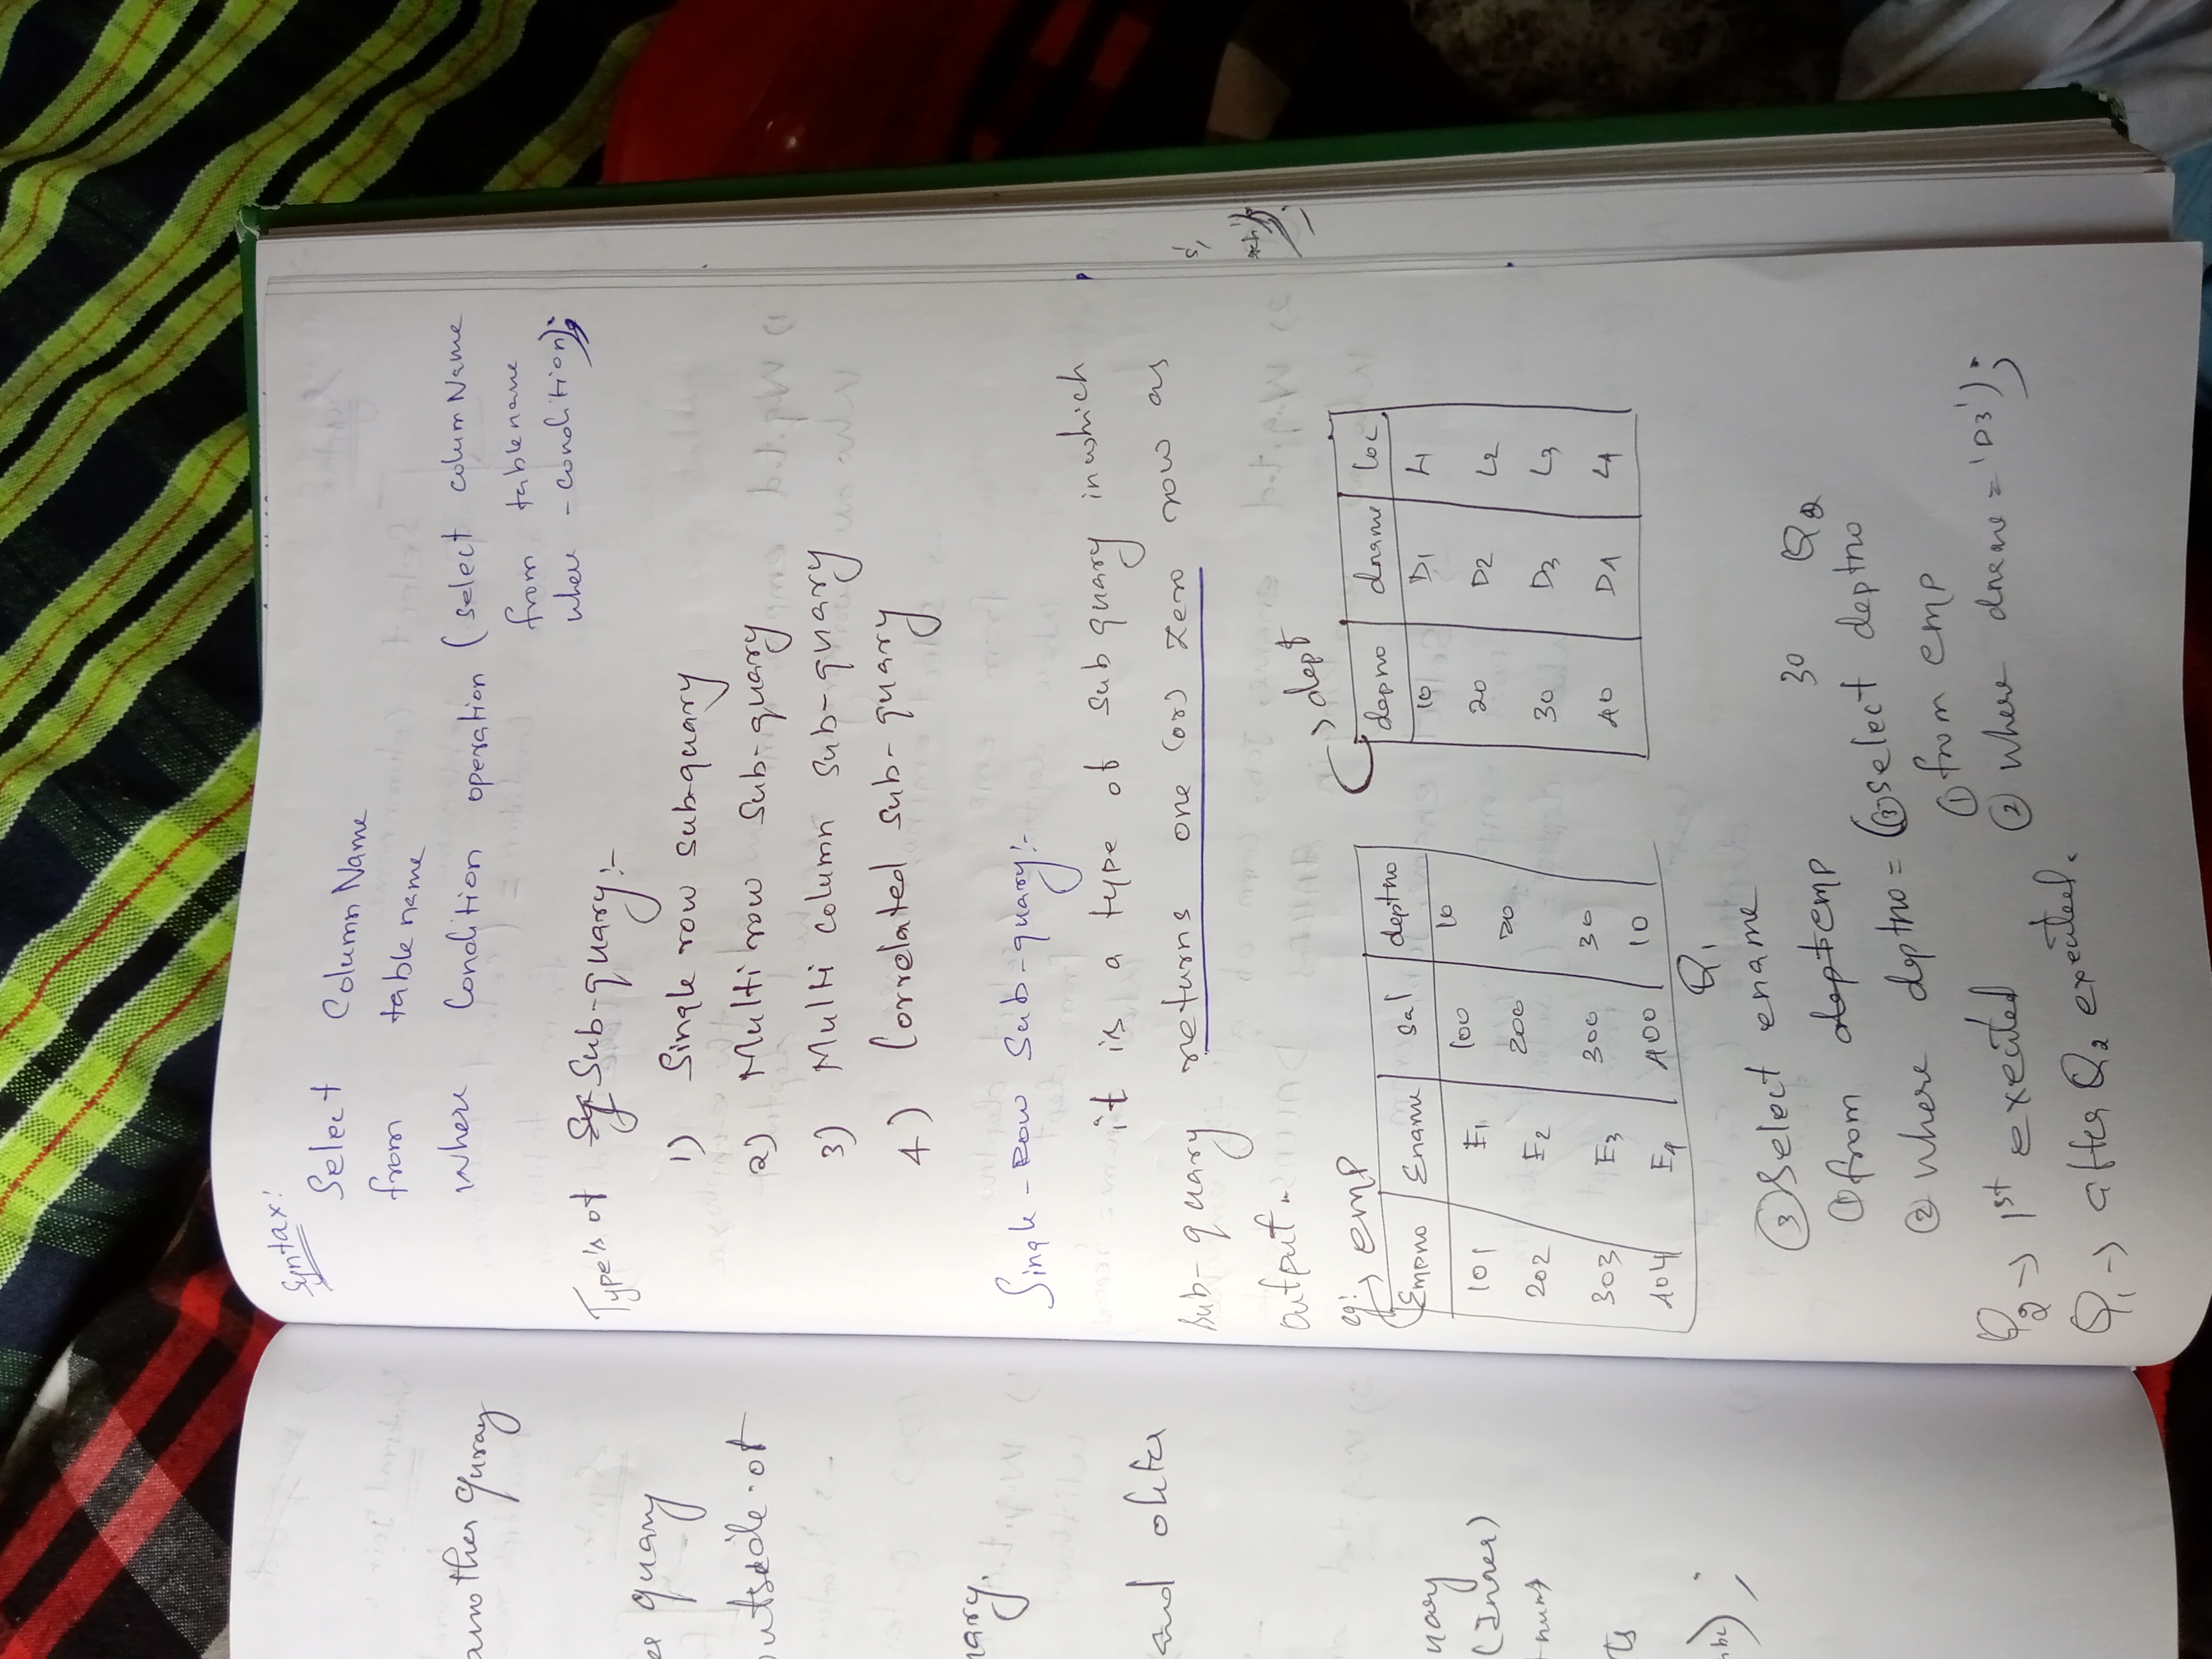 another quray
quary
outside of
and ofter
(Inner)
Syntax:
Select ColumnName
from tablename
where Condition operation (select columName
from tablename
where -condition);
Type's of Sub-quary:-
1) Single row sub-quary
2) Multi row sub-quary
3) Multi column sub-quary
4) Correlated sub-quary
Single-row Sub-quary:-
it is a type of sub quary in which
sub-quary returns one (or) zero row as
output.
eg:→ emp
→ dept
Empno Ename sal deptno
101 E1 100 10
202 E2 200 20
303 E3 300 30
404 E4 400 10
depno dname loc
10 D1 L1
20 D2 L2
30 D3 L3
40 D4 L4
Q1
30 Q2
③ Select ename
① from dept emp
② where dptno = (③ select deptno
① from emp
② where dname = 'D3');
Q2 → 1st executed
Q1 → after Q2 executed.